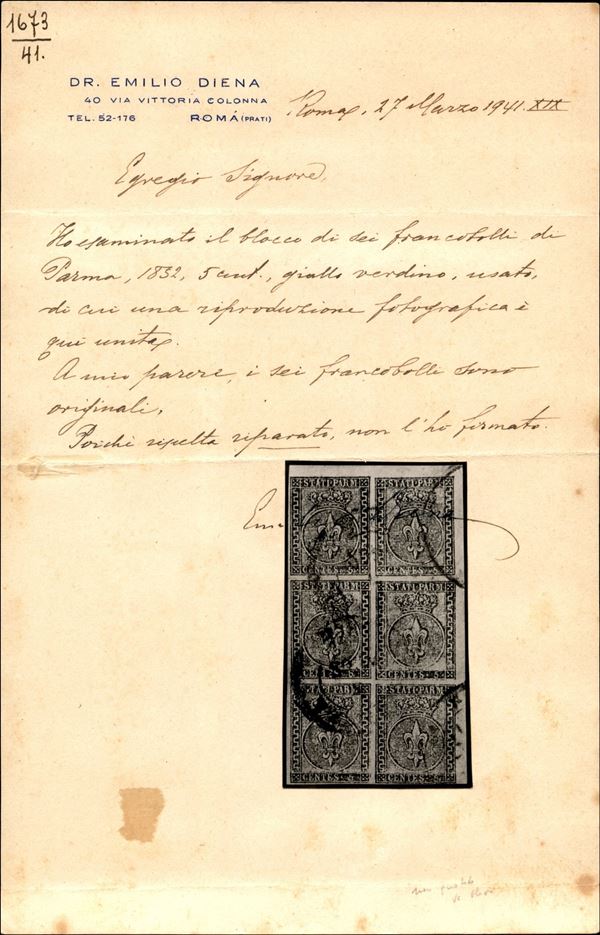 1673
41.
DR. EMILIO DIENA
40 VIA VITTORIA COLONNA
TEL. 52-176 ROMA (PRATI)
Roma, 27 Marzo 1941. XIX
Egregio Signore,
Ho esaminato il blocco di sei francobolli di
Parma, 1852, 5 cent., giallo verdino, usato,
di cui una riproduzione fotografica è
qui unita.
A mio parere, i sei francobolli sono
originali.
Poichè risulta riparato, non l'ho firmato.
STATI·PARM STATI·PARM
CENTES·5 CENTES·5
STATI·PARM STATI·PARM
CENTES·5 CENTES·5
STATI·PARM STATI·PARM
CENTES·5 CENTES·5